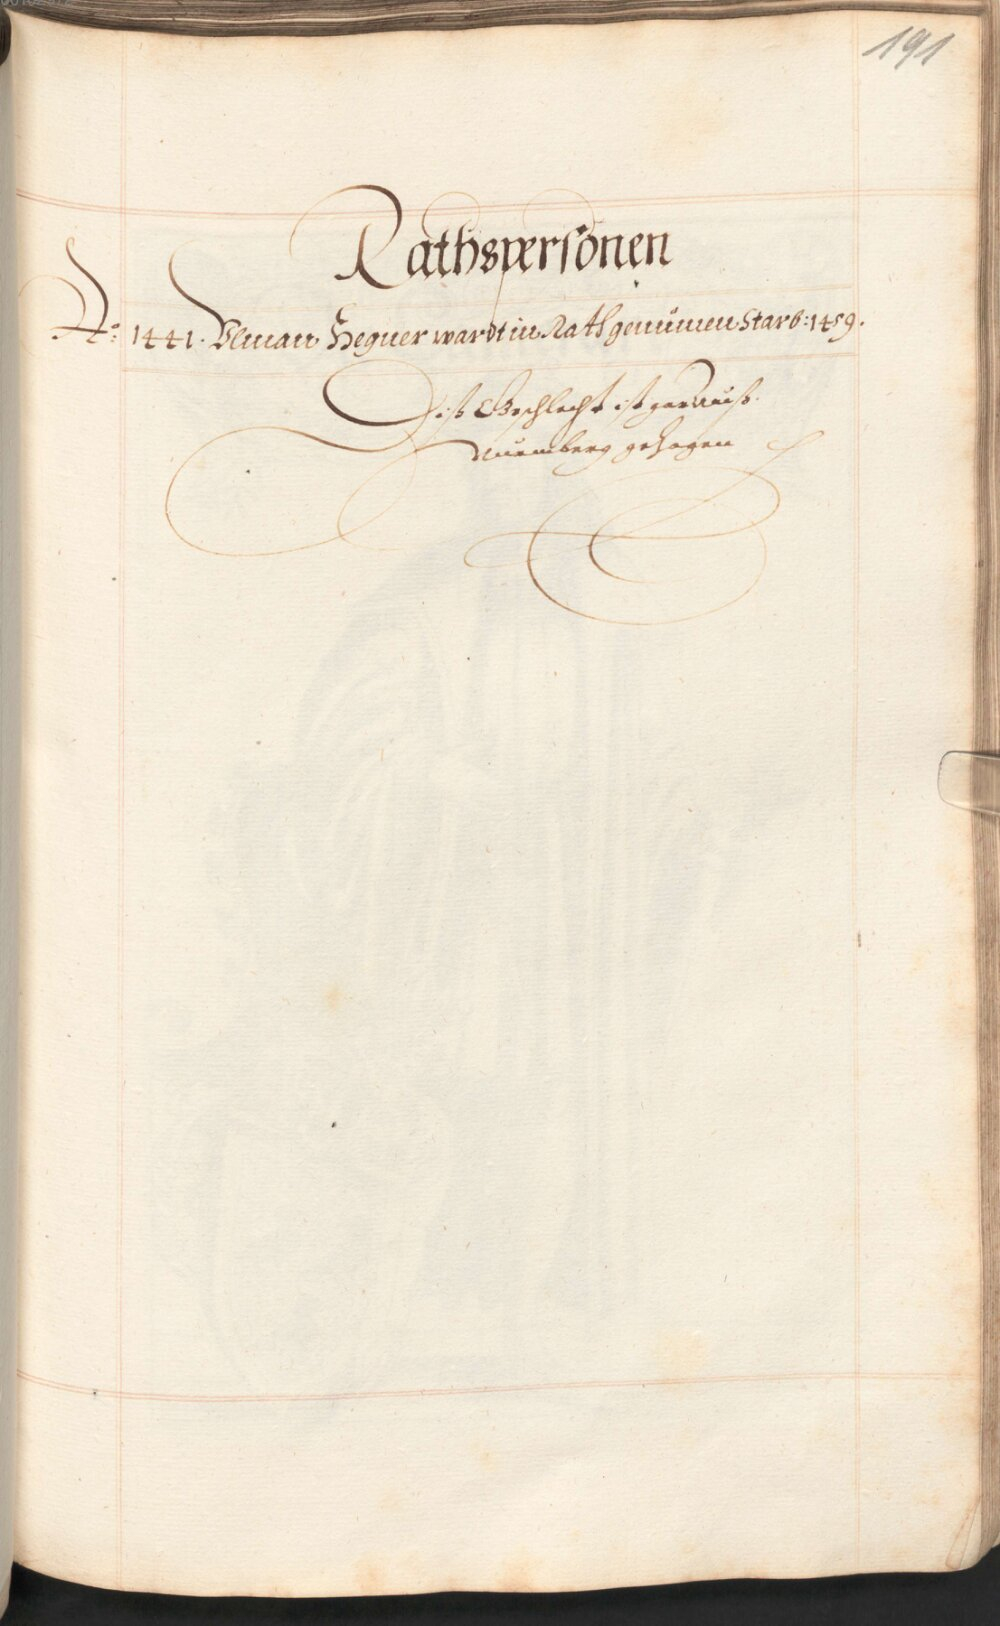 191
Rathspersonen
Ao: 1441. Ulman Hegner wardt in Rath genumen Starb: 1459.
Diß Geschlecht ist gar auß
Nurmberg gezogen